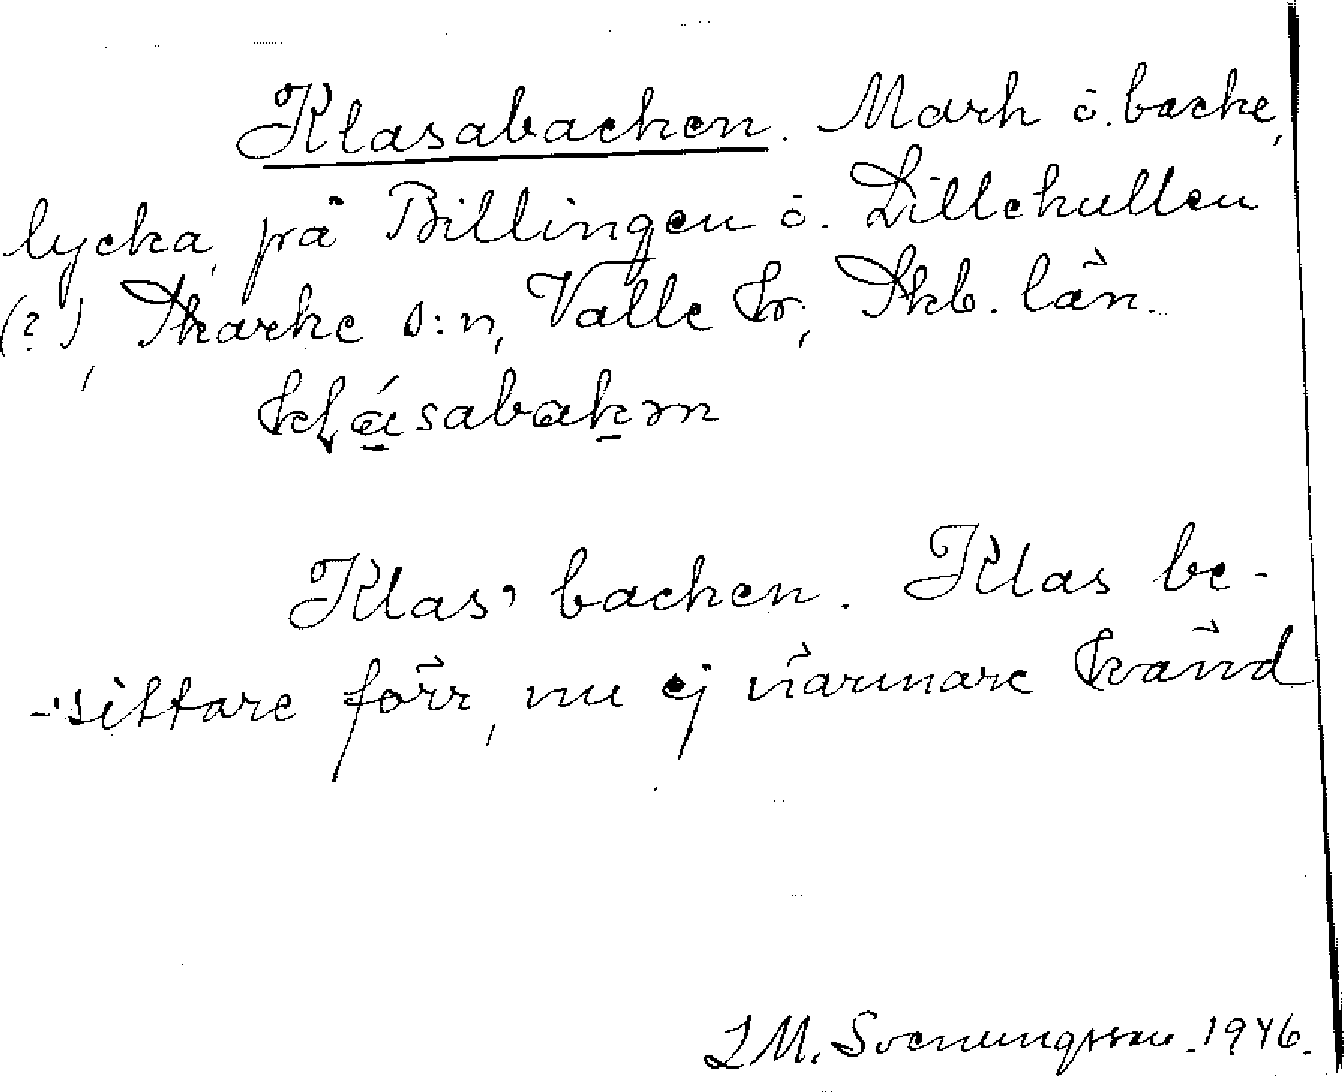 Klasabacken. Mark o. backe,
lycka, på Billingen o. Lillekullen
(?), Skarke s:n, Valle hr, Skb. län.
kḷásabakən
Klas' backen. Klas be-
-sittare förr, nu ej närmare känd
L M. Svenungsson. 1946.